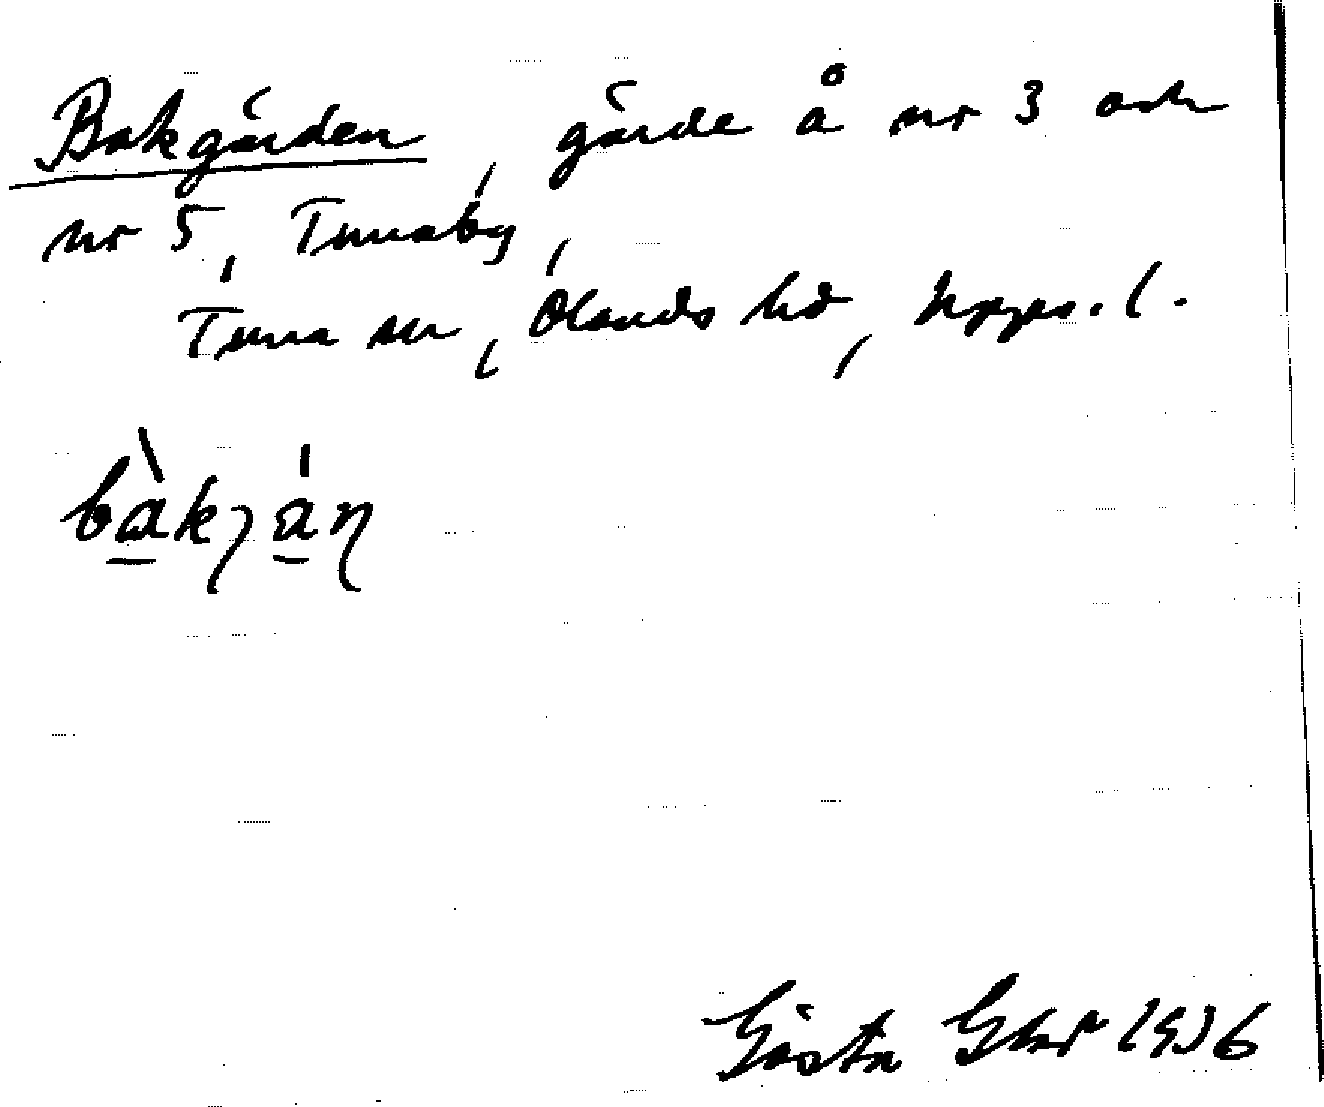 Bakgärden, gärde å nr 3 och
nr 5, Tunaby,
Tuna sn, Ölands hd, Upps. l.
bàkɿán
Gösta 1936